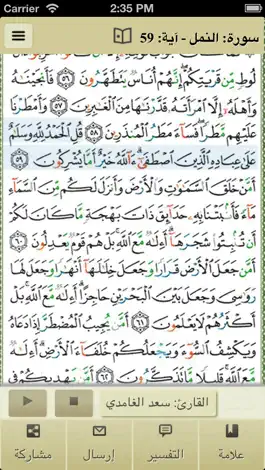 Carrier 2:35 PM
سورة: النمل - آية: 59
لُوطٍ مِّن قَرْيَتِكُمْ إِنَّهُمْ أُنَاسٌ يَتَطَهَّرُونَ ٥٦ فَأَنجَيْنَٰهُ
وَأَهْلَهُۥٓ إِلَّا ٱمْرَأَتَهُۥ قَدَّرْنَٰهَا مِنَ ٱلْغَٰبِرِينَ ٥٧ وَأَمْطَرْنَا
عَلَيْهِم مَّطَرًا فَسَآءَ مَطَرُ ٱلْمُنذَرِينَ ٥٨ قُلِ ٱلْحَمْدُ لِلَّهِ وَسَلَٰمٌ
عَلَىٰ عِبَادِهِ ٱلَّذِينَ ٱصْطَفَىٰٓ ءَآللَّهُ خَيْرٌ أَمَّا يُشْرِكُونَ ٥٩
أَمَّنْ خَلَقَ ٱلسَّمَٰوَٰتِ وَٱلْأَرْضَ وَأَنزَلَ لَكُم مِّنَ ٱلسَّمَآءِ
مَآءً فَأَنۢبَتْنَا بِهِۦ حَدَآئِقَ ذَاتَ بَهْجَةٍ مَّا كَانَ لَكُمْ
أَن تُنۢبِتُوا۟ شَجَرَهَآ أَءِلَٰهٌ مَّعَ ٱللَّهِ بَلْ هُمْ قَوْمٌ يَعْدِلُونَ ٦٠
أَمَّن جَعَلَ ٱلْأَرْضَ قَرَارًا وَجَعَلَ خِلَٰلَهَآ أَنْهَٰرًا وَجَعَلَ لَهَا
رَوَٰسِىَ وَجَعَلَ بَيْنَ ٱلْبَحْرَيْنِ حَاجِزًا أَءِلَٰهٌ مَّعَ ٱللَّهِ بَلْ
أَكْثَرُهُمْ لَا يَعْلَمُونَ ٦١ أَمَّن يُجِيبُ ٱلْمُضْطَرَّ إِذَا دَعَاهُ
وَيَكْشِفُ ٱلسُّوٓءَ وَيَجْعَلُكُمْ خُلَفَآءَ ٱلْأَرْضِ أَءِلَٰهٌ
مَّعَ ٱللَّهِ قَلِيلًا مَّا تَذَكَّرُونَ ٦٢ أَمَّن يَهْدِيكُمْ فِى
القارئ: سعد الغامدي
علامة التفسير إرسال مشاركة